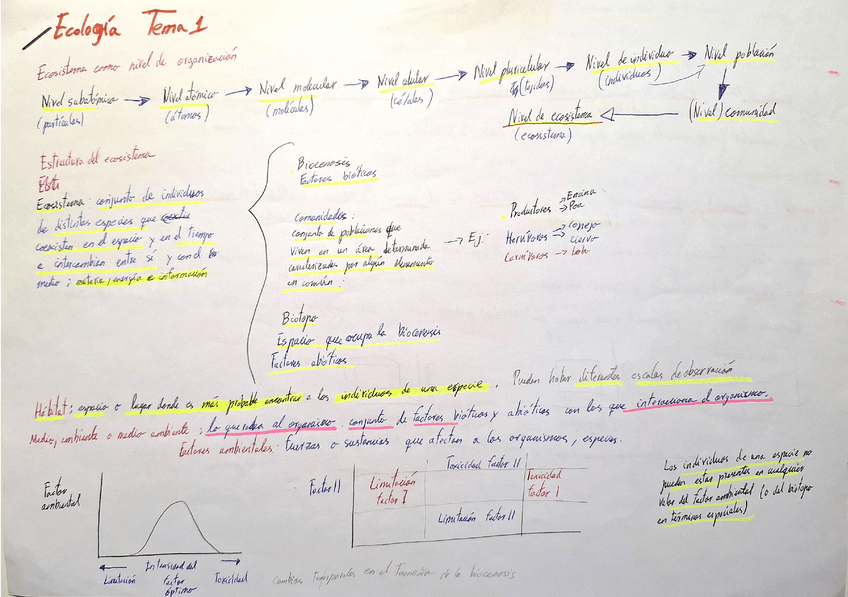 Ecología Tema 1
Ecosistema como nivel de organización
Nivel subatómico → Nivel atómico → Nivel molecular → Nivel celular → Nivel pluricelular → Nivel de individuo → Nivel población
(partículas) (átomos) (moléculas) (células) (tejidos) (individuos)
Nivel de ecosistema (Nivel) comunidad
(ecosistema)
Estructura del ecosistema
Ecosistema: conjunto de individuos
de distintas especies que
coexisten en el espacio y en el tiempo
e intercambian entre sí y con el
medio; materia, energía e información
Biocenosis
Factores bióticos
Comunidades:
conjunto de poblaciones que
viven en un área determinada
caracterizadas por algún
en común:
→ Ej:
Productores → Encina
→ Poa
Hervívoros → conejo
→ Ciervo
Carnívoros → Lobo
Biotopo
Espacio que ocupa la biocenosis
Factores abióticos
Hábitat: espacio o lugar donde es más probable encontrar a los individuos de una especie. Pueden haber diferentes escalas de observación
Medio, ambiente o medio ambiente: lo que rodea al organismo. conjunto de factores vióticos y abióticos con los que interacciona el organismo.
Factores ambientales: Fuerzas o sustancias que afectan a los organismos, especies.
Factor
ambiental
Limitación
Intensidad del
factor
óptimo
Toxicidad
Factor II
Toxicidad factor II
Limitación
factor I
Toxicidad
factor I
Limitación factor II
Los individuos de una especie no
pueden estar presentes en cualquier
valor del factor ambiental (o del biotopo
en términos espaciales)
Cambios temporales en el de la biocenosis